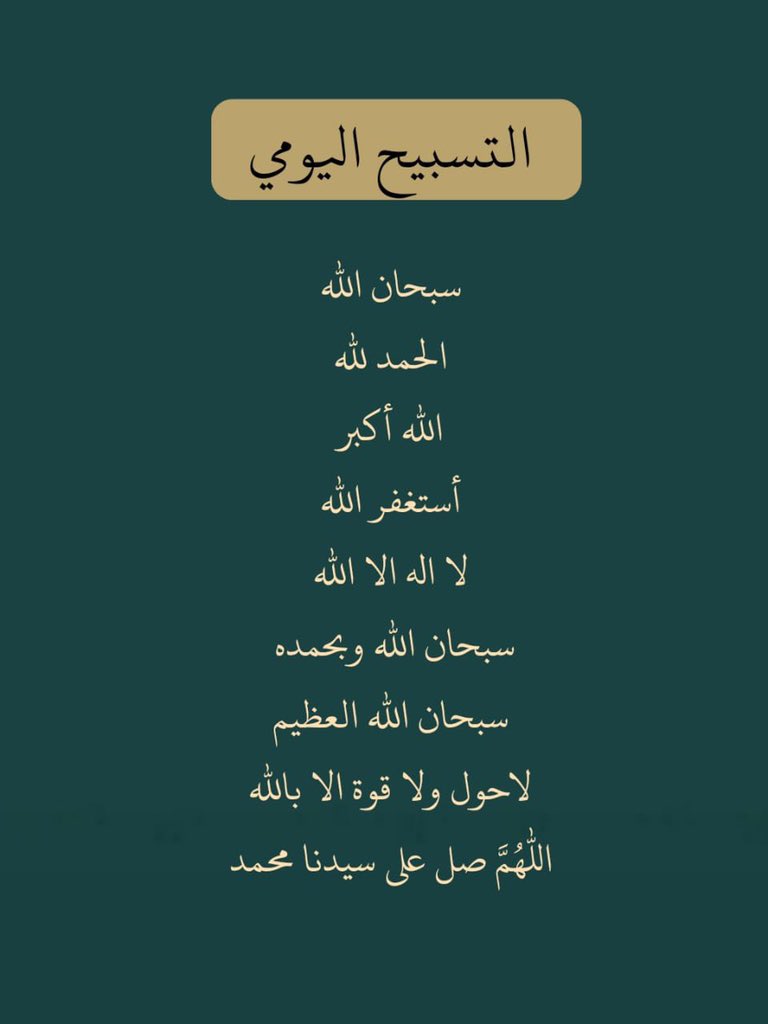 التسبيح اليومي
سبحان الله
الحمد لله
الله أكبر
أستغفر الله
لا اله الا الله
سبحان الله وبحمده
سبحان الله العظيم
لاحول ولا قوة الا بالله
اللهُمَّ صل على سيدنا محمد